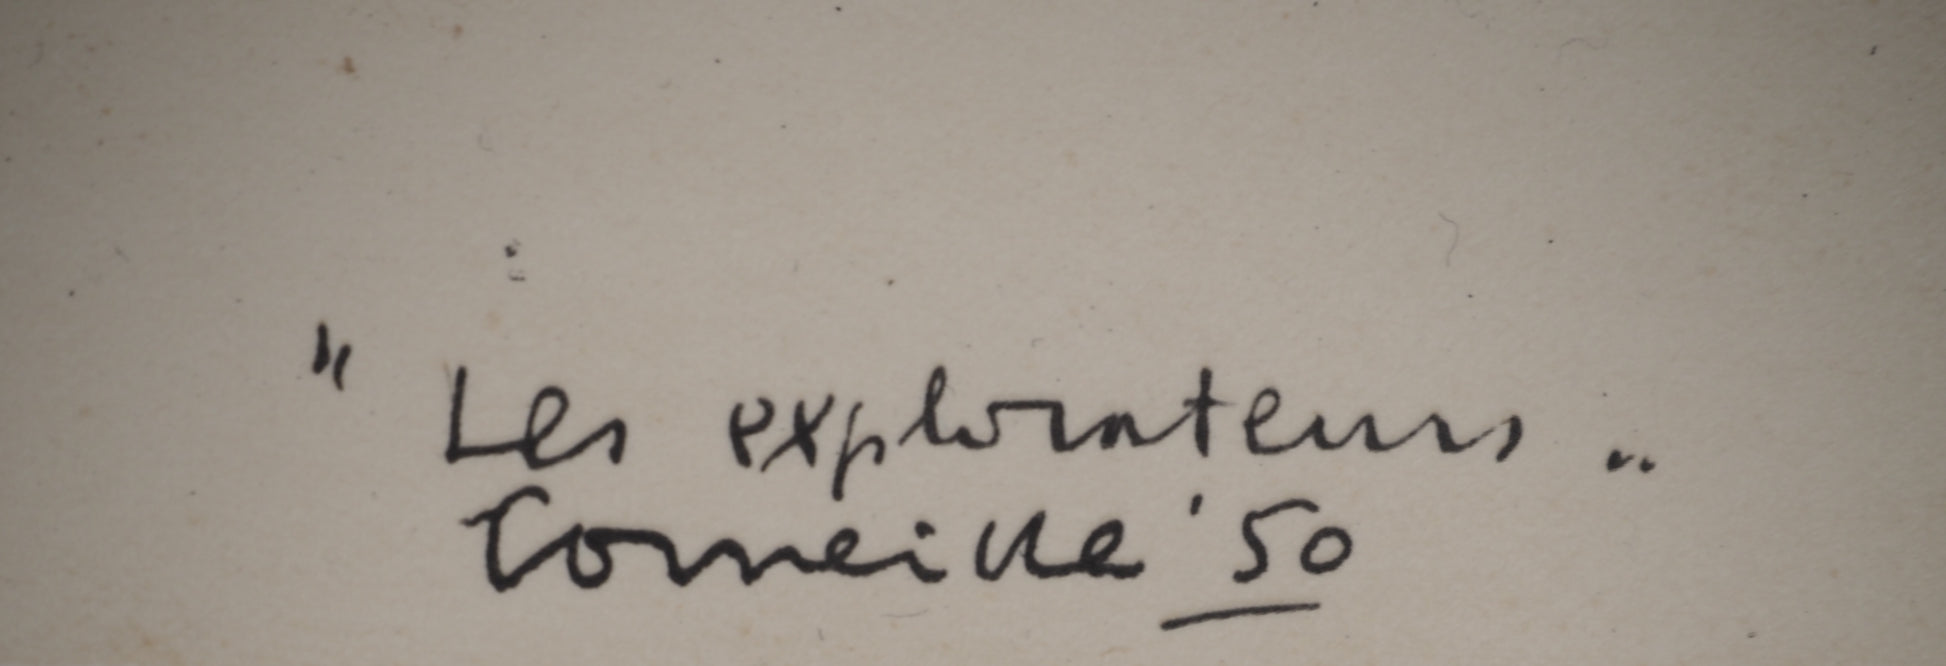 " Les explorateurs „
Corneille '50